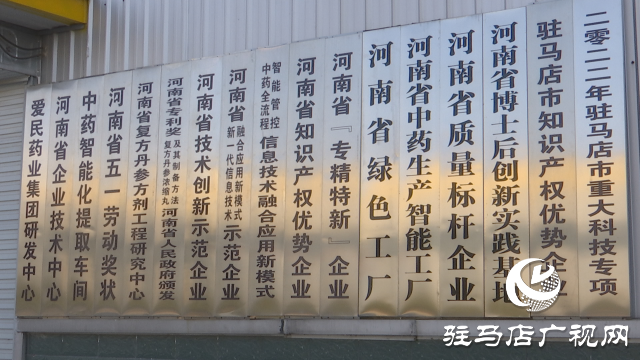 爱民药业集团研发中心
河南省企业技术中心
中药智能化提取车间
河南省五一劳动奖状
河南省复方丹参方剂工程研究中心
河南省专利奖
复方丹参浓缩丸
及其制备方法
河南省人民政府颁发
河南省技术创新示范企业
河南省
新一代信息技术
融合应用新模式
示范企业
中药全流程
智能管控
信息技术融合应用新模式
河南省知识产权优势企业
河南省『专精特新』企业
河南省绿色工厂
河南省中药生产智能工厂
河南省质量标杆企业
河南省博士后创新实践基地
驻马店市知识产权优势企业
二零二二年驻马店市重大科技专项
驻马店广视网